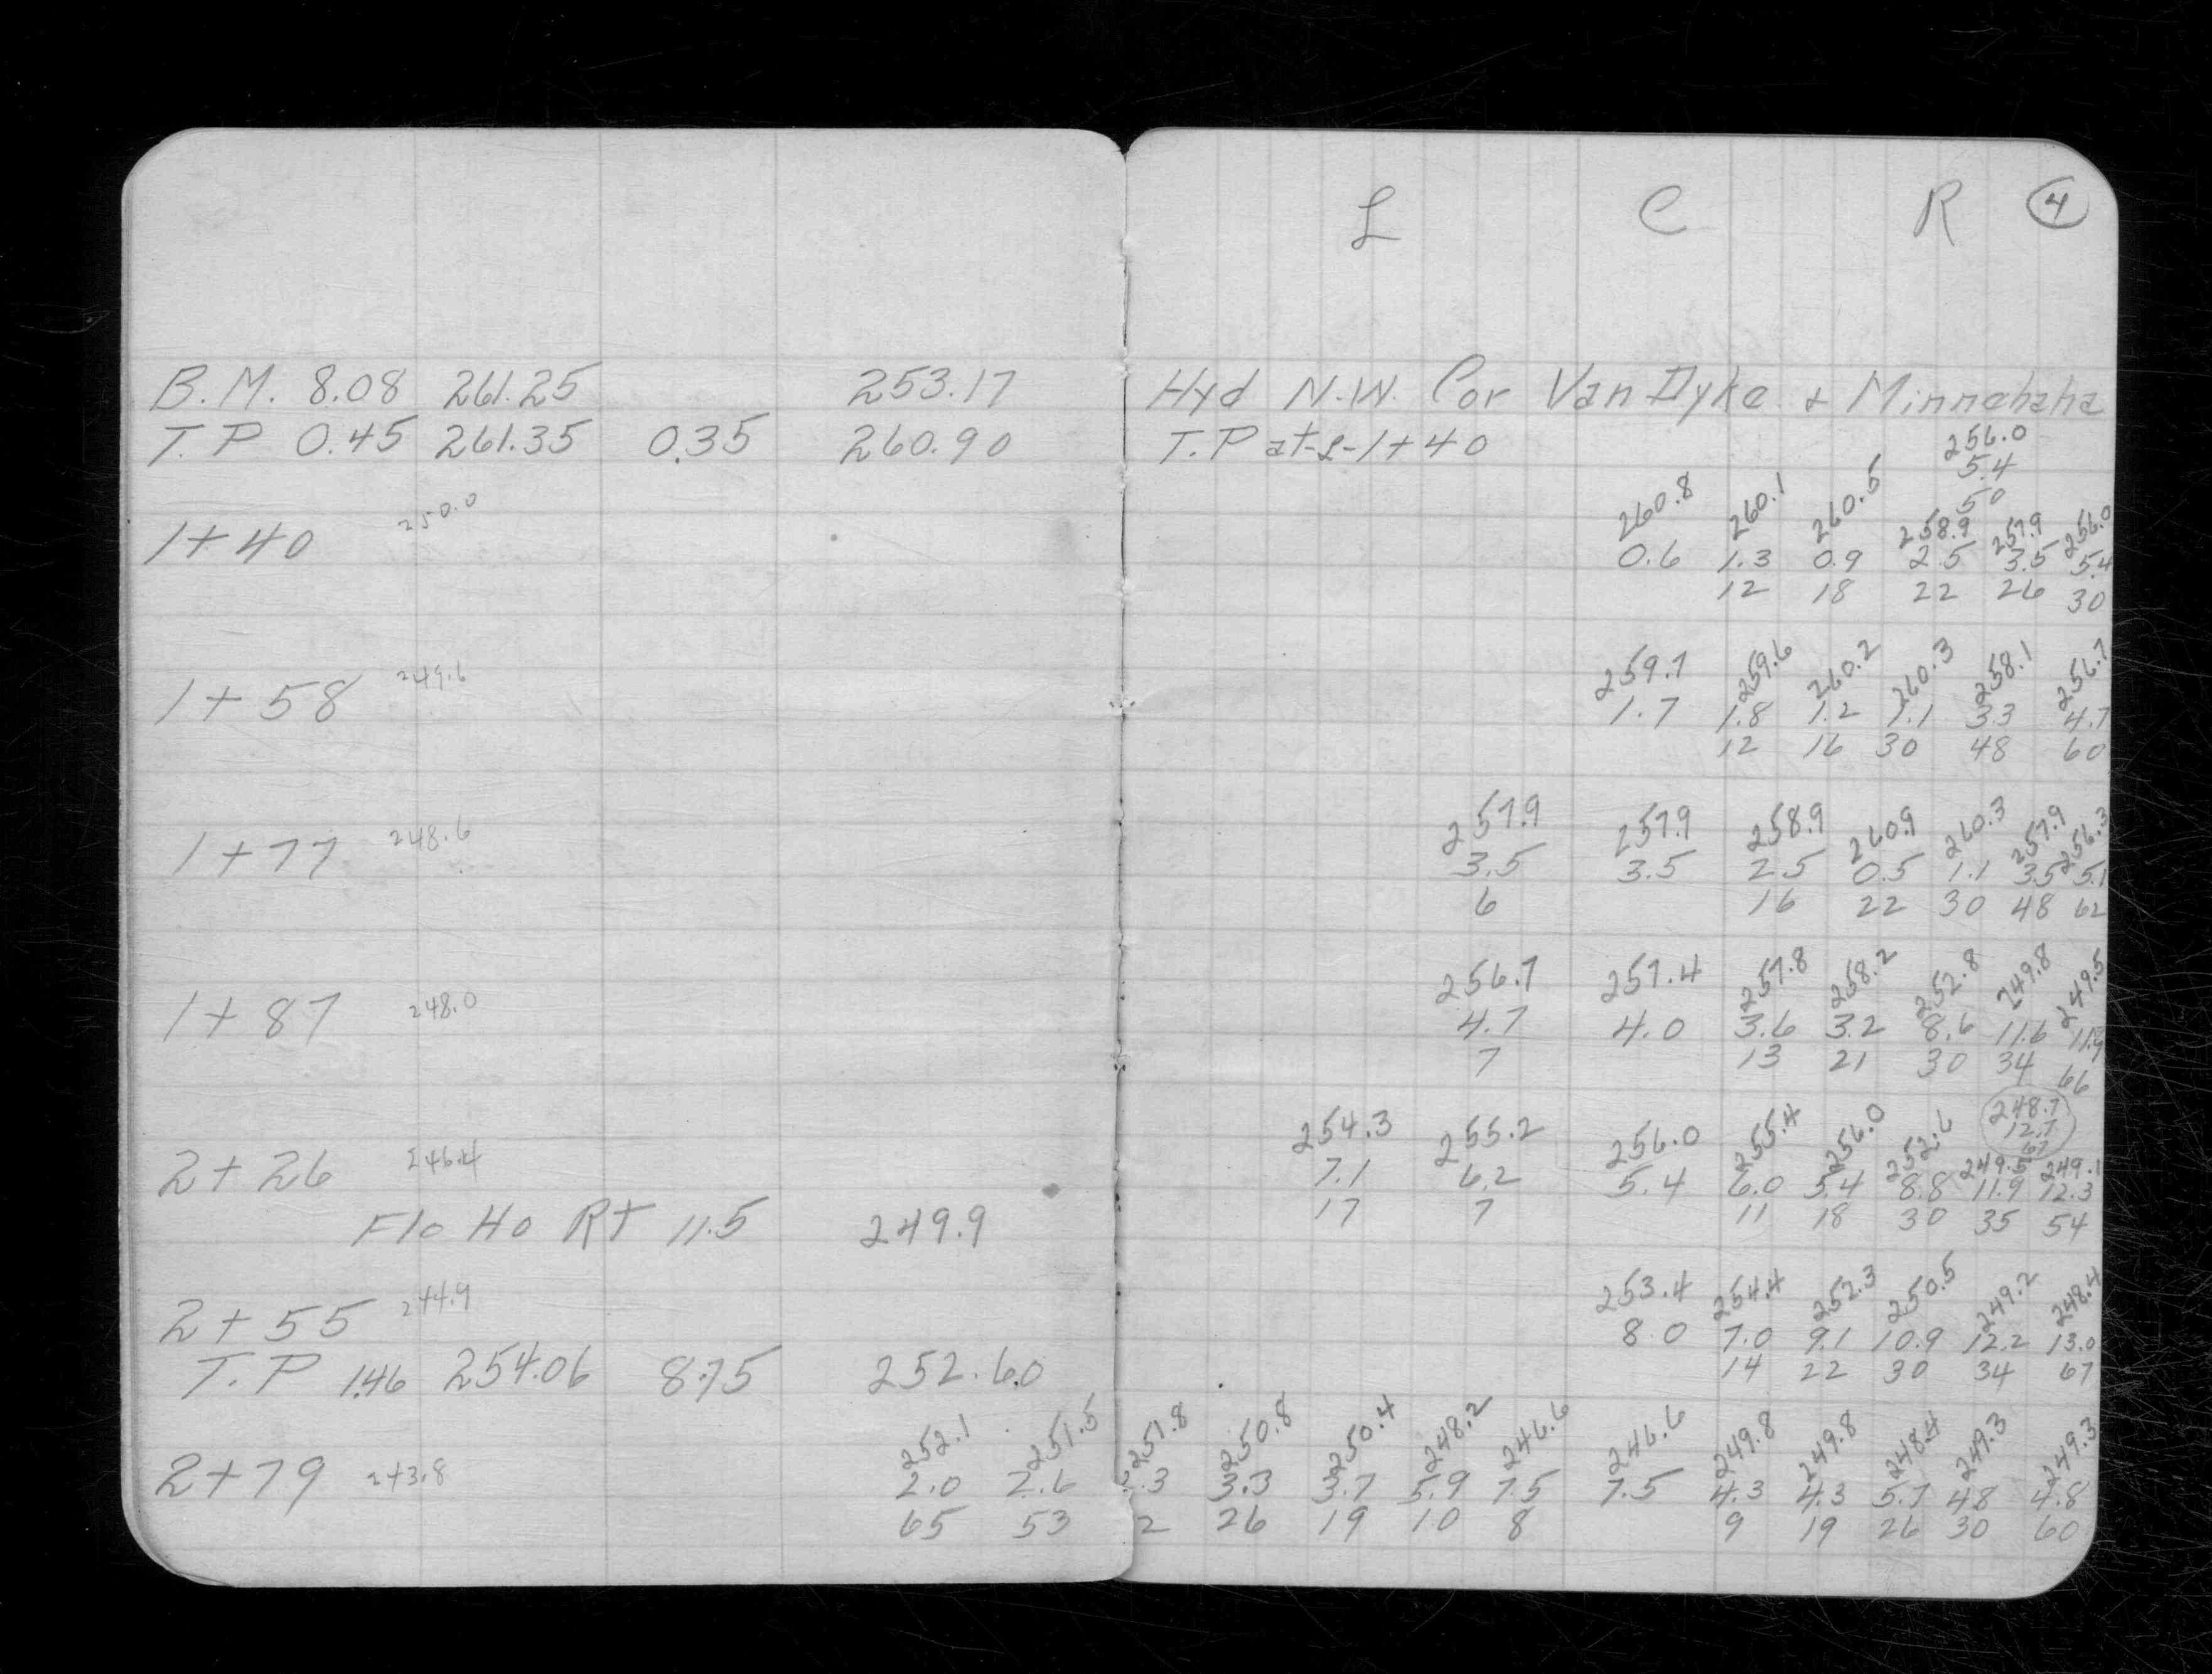 L C R 4
B.M. 8.08 261.25 253.17 Hyd N.W. Cor Van Dyke & Minnehaha
T.P 0.45 261.35 0.35 260.90 T.P at-L-1+40
256.0
5.4
50
1+40 250.0
260.8 260.1 260.5 258.9 257.9 256.0
0.6 1.3 0.9 2.5 3.5 5.4
12 18 22 26 30
1+58 249.6
259.7 259.6 260.2 260.3 258.1 256.7
1.7 1.8 1.2 1.1 3.3 4.7
12 16 30 48 60
1+77 248.6
257.9 257.9 258.9 260.9 260.3 257.9 256.3
3.5 3.5 2.5 0.5 1.1 3.5 5.1
6 16 22 30 48 62
1+87 248.0
256.7 257.4 257.8 258.2 252.8 249.8 249.5
4.7 4.0 3.6 3.2 8.6 11.6 11.9
7 13 21 30 34 66
248.7
12.7
67
2+26 246.4
254.3 255.2 256.0 255.4 256.0 252.6 249.5 249.1
7.1 6.2 5.4 6.0 5.4 8.8 11.9 12.3
17 7 11 18 30 35 54
Flo Ho Rt 11.5 249.9
2+55 244.9
253.4 254.4 252.3 250.5 249.2 248.4
8.0 7.0 9.1 10.9 12.2 13.0
14 22 30 34 67
T.P 1.46 254.06 8.75 252.60
2+79 243.8
252.1 251.5 251.8 250.8 250.4 248.2 246.6 246.6 249.8 249.8 248.4 249.3 249.3
2.0 2.6 2.3 3.3 3.7 5.9 7.5 7.5 4.3 4.3 5.7 4.8 4.8
65 53 2 26 19 10 8 9 19 26 30 60